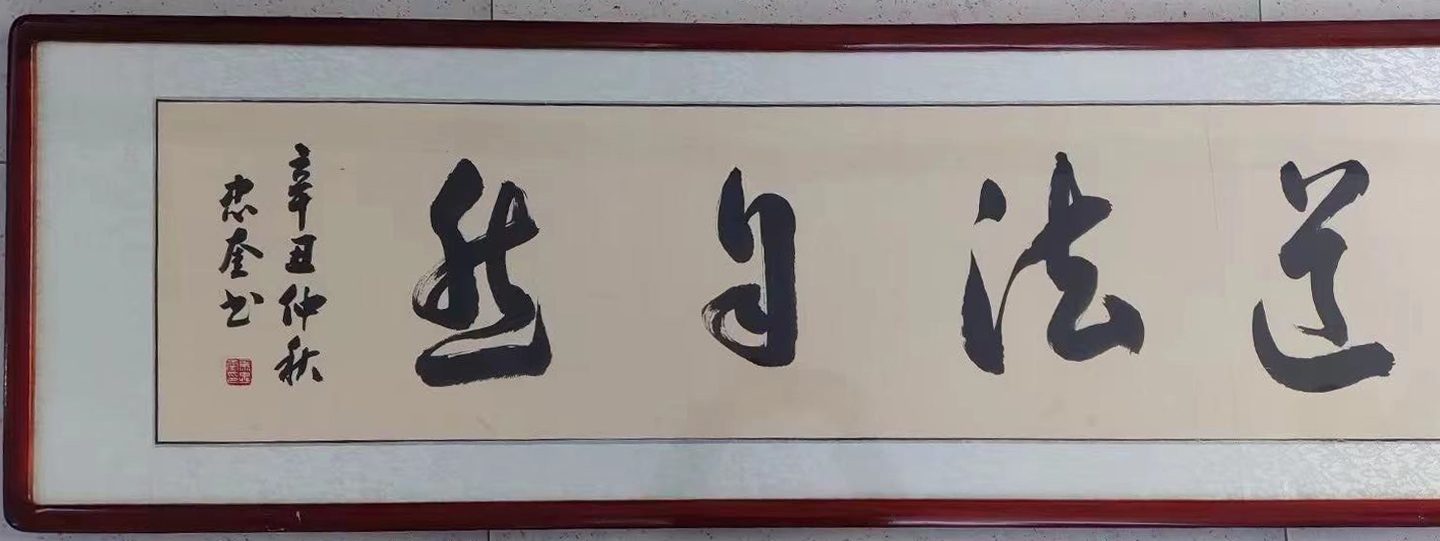 道法自然
辛丑仲秋
忠奎书